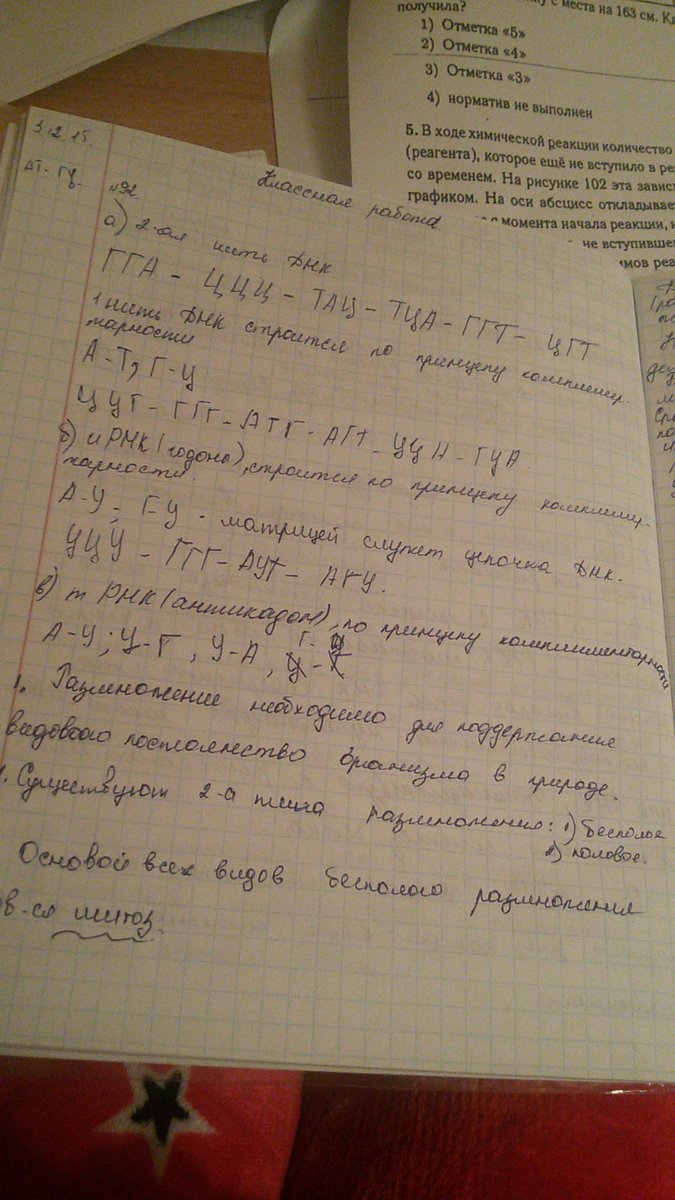 с места на 163 см.
получила?
1) Отметка «5»
2) Отметка «4»
3) Отметка «3»
4) норматив не выполнен
5. В ходе химической реакции количество
(реагента), которое ещё не вступило в
со временем. На рисунке 102 эта
графиком. На оси абсцисс
с момента начала реакции,
не
3.12.15.
АТ-ГЦ
Классная работа
№92
а) 2-ая нить ДНК
ГГА - ЦЦЦ - ТАЦ - ТЦА - ГГТ - ЦГТ
1 нить ДНК строится по принципу комплимен-
тарности
А-Т; Г-Ц
ЦЦТ - ГГГ - АТГ - АГТ - ЦЦА - ГЦА
б) и РНК (кодоны), строится по принципу комплимен-
тарности.
А-У; ГЦ - матрицей служит цепочка ДНК.
УЦУ - ГГГ - АУГ - АГУ.
в) т РНК (антикадон), по принципу комплиментарности
А-У; Ц-Г, У-А, Г-Ц
1. Размножение необходимо для поддержания
видового постоянство организма в природе.
Существуют 2-а типа размножения: 1) бесполое
2) половое.
Основой всех видов бесполого размножения
в-ся митоз.